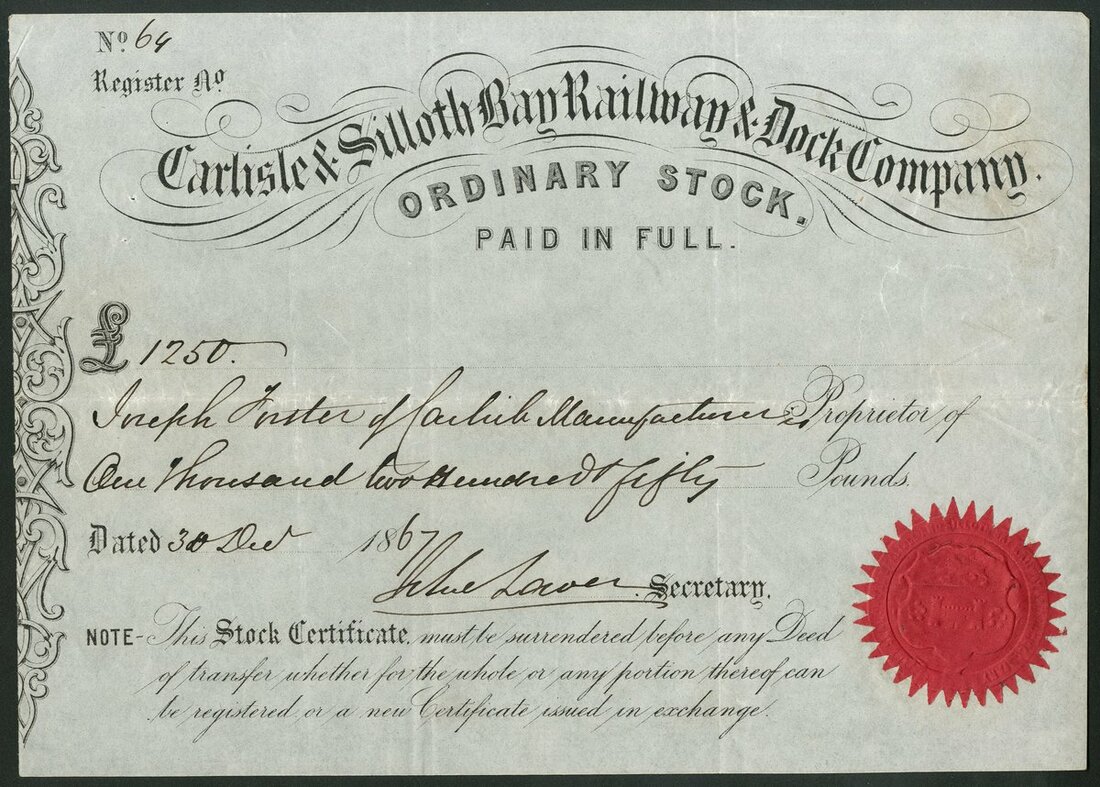 Nº 64
Register Nº
Carlisle & Silloth Bay Railway & Dock Company.
ORDINARY STOCK.
PAID IN FULL.
£ 1250.
Joseph Forster of Carlisle Manufacturer is Proprietor of
One Thousand two Hundred & fifty Pounds.
Dated 30 Dec 1867
Secretary.
NOTE- This Stock Certificate, must be surrendered before any Deed
of transfer whether for the whole or any portion thereof can
be registered, or a new Certificate issued in exchange.